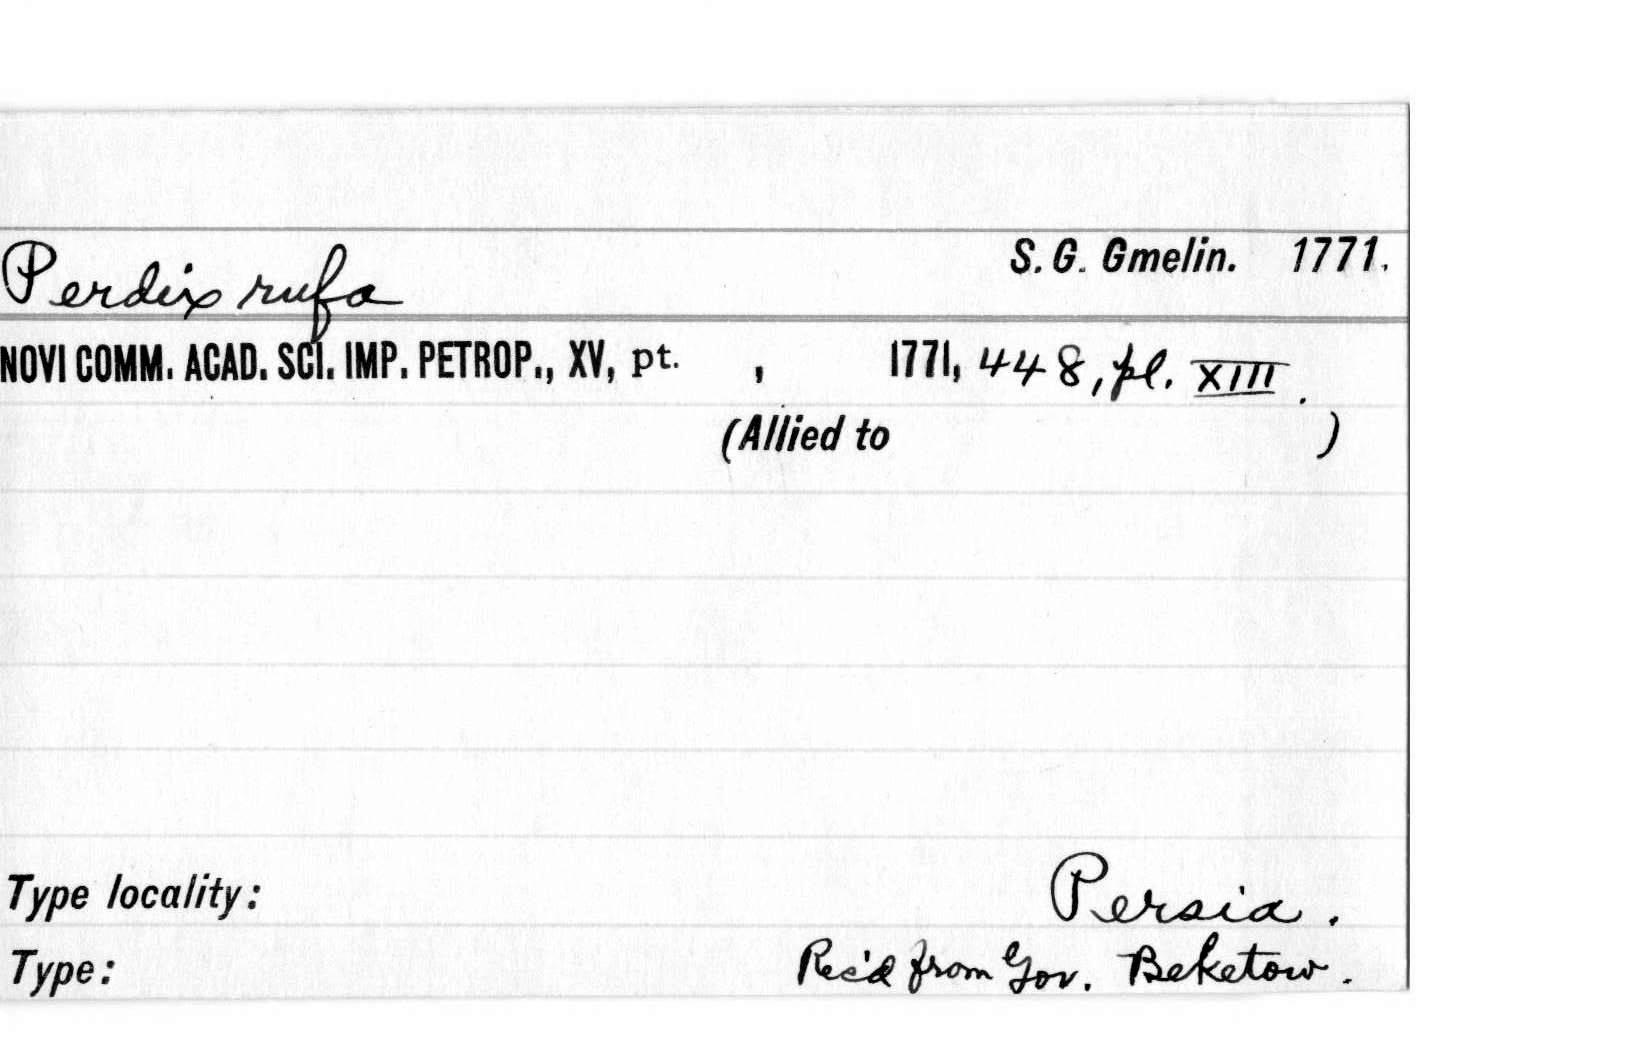 Perdix rufa S. G. Gmelin. 1771.
NOVI COMM. ACAD. SCI. IMP. PETROP., XV, pt. , 1771, 448, pl. XIII.
(Allied to )
Type locality: Persia.
Type: Rec'd from Gov. Beketow.